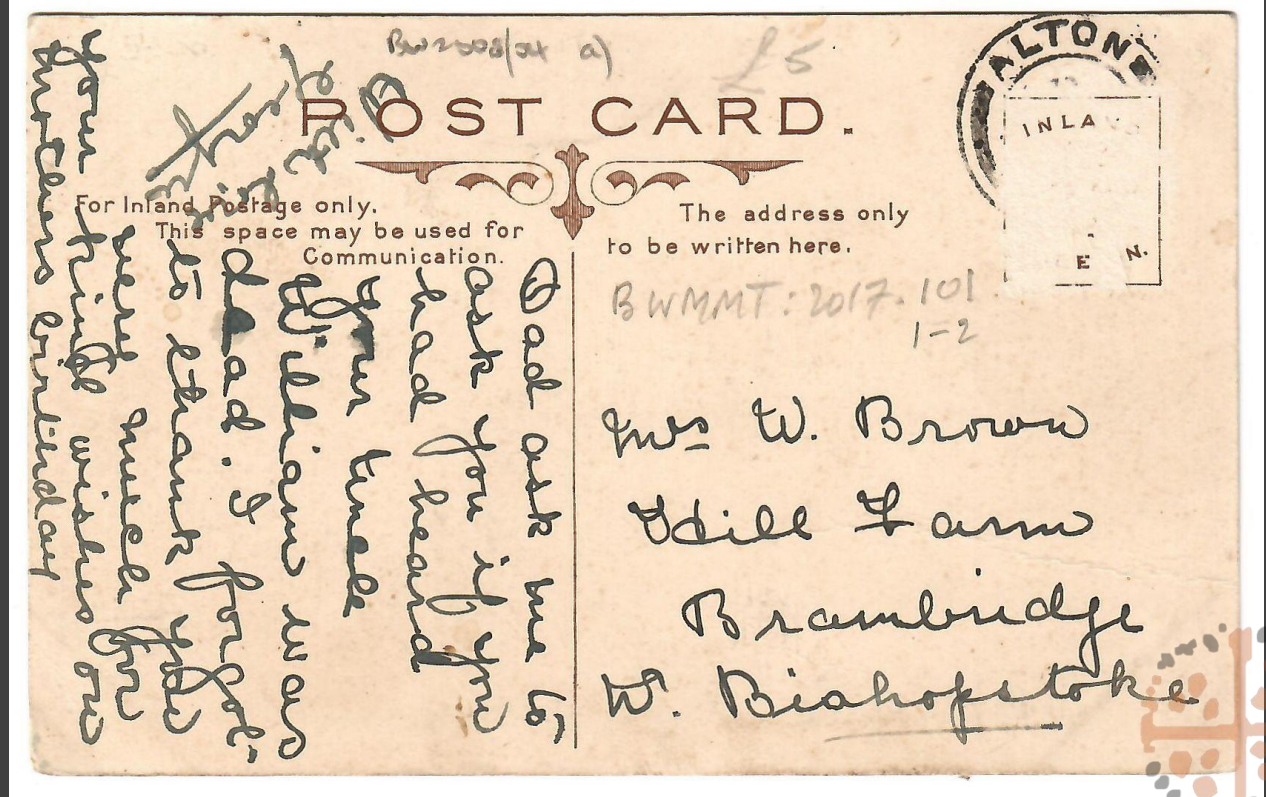 £5
ALTON
POST CARD.
INLA
E N.
For Inland Postage only.
This space may be used for
Communication.
The address only
to be written here.
BWMMT: 2017.101
1-2
Dad ask me to
ask you if you
had heard
your uncle
William was
dead. I forgot-
to thank you
very much for
your kind wishes on
mothers birthday
Mrs W. Brown
Hill Farm
Brambridge
Bishopstoke